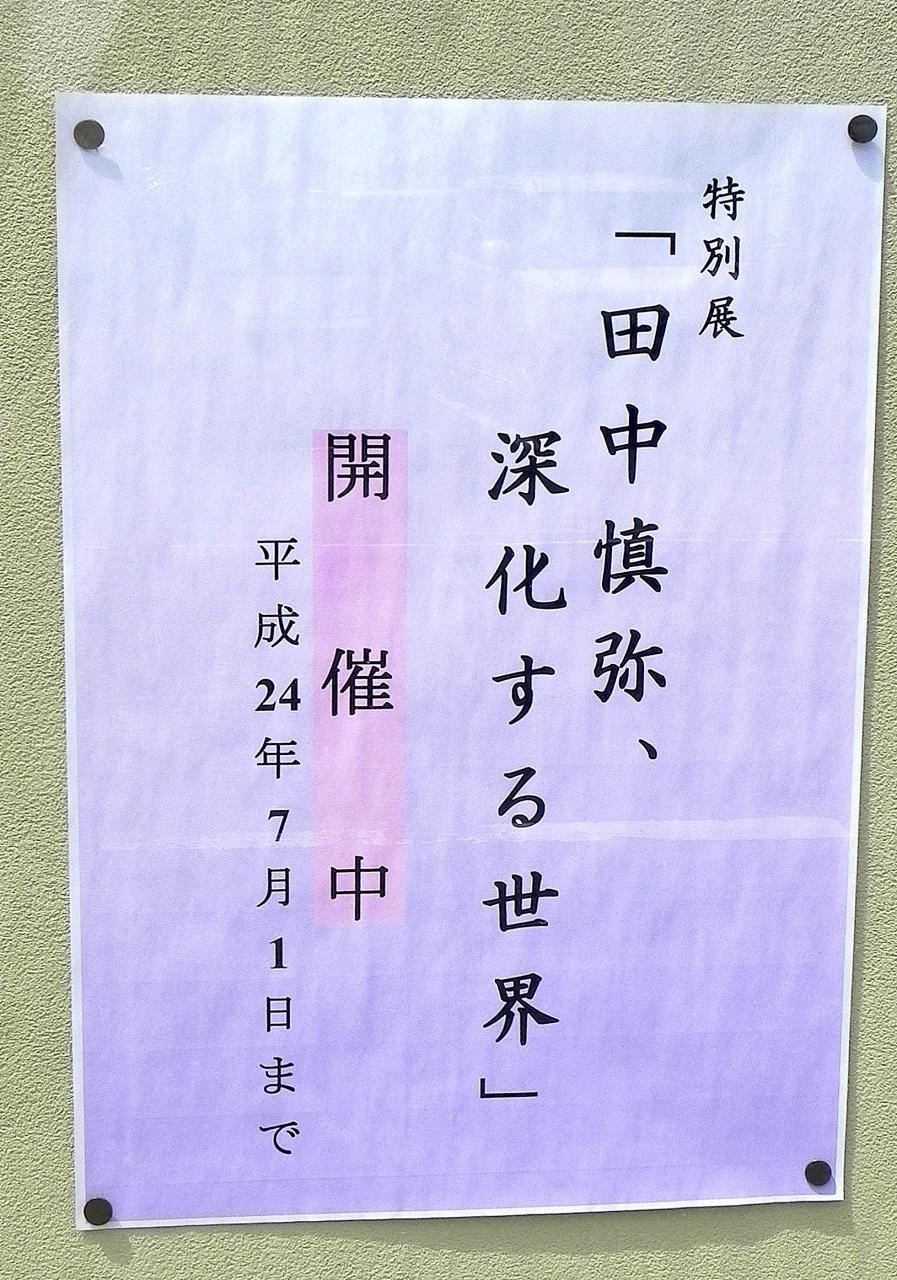 特別展
「田中慎弥、
深化する世界」
開催中
平成24年7月1日まで